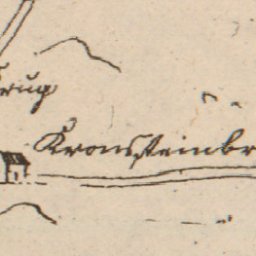 rug
Kronsteinbr